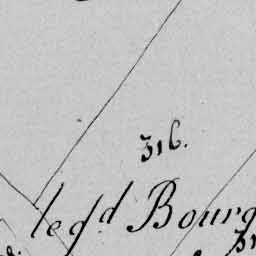 316.
legd Bourg